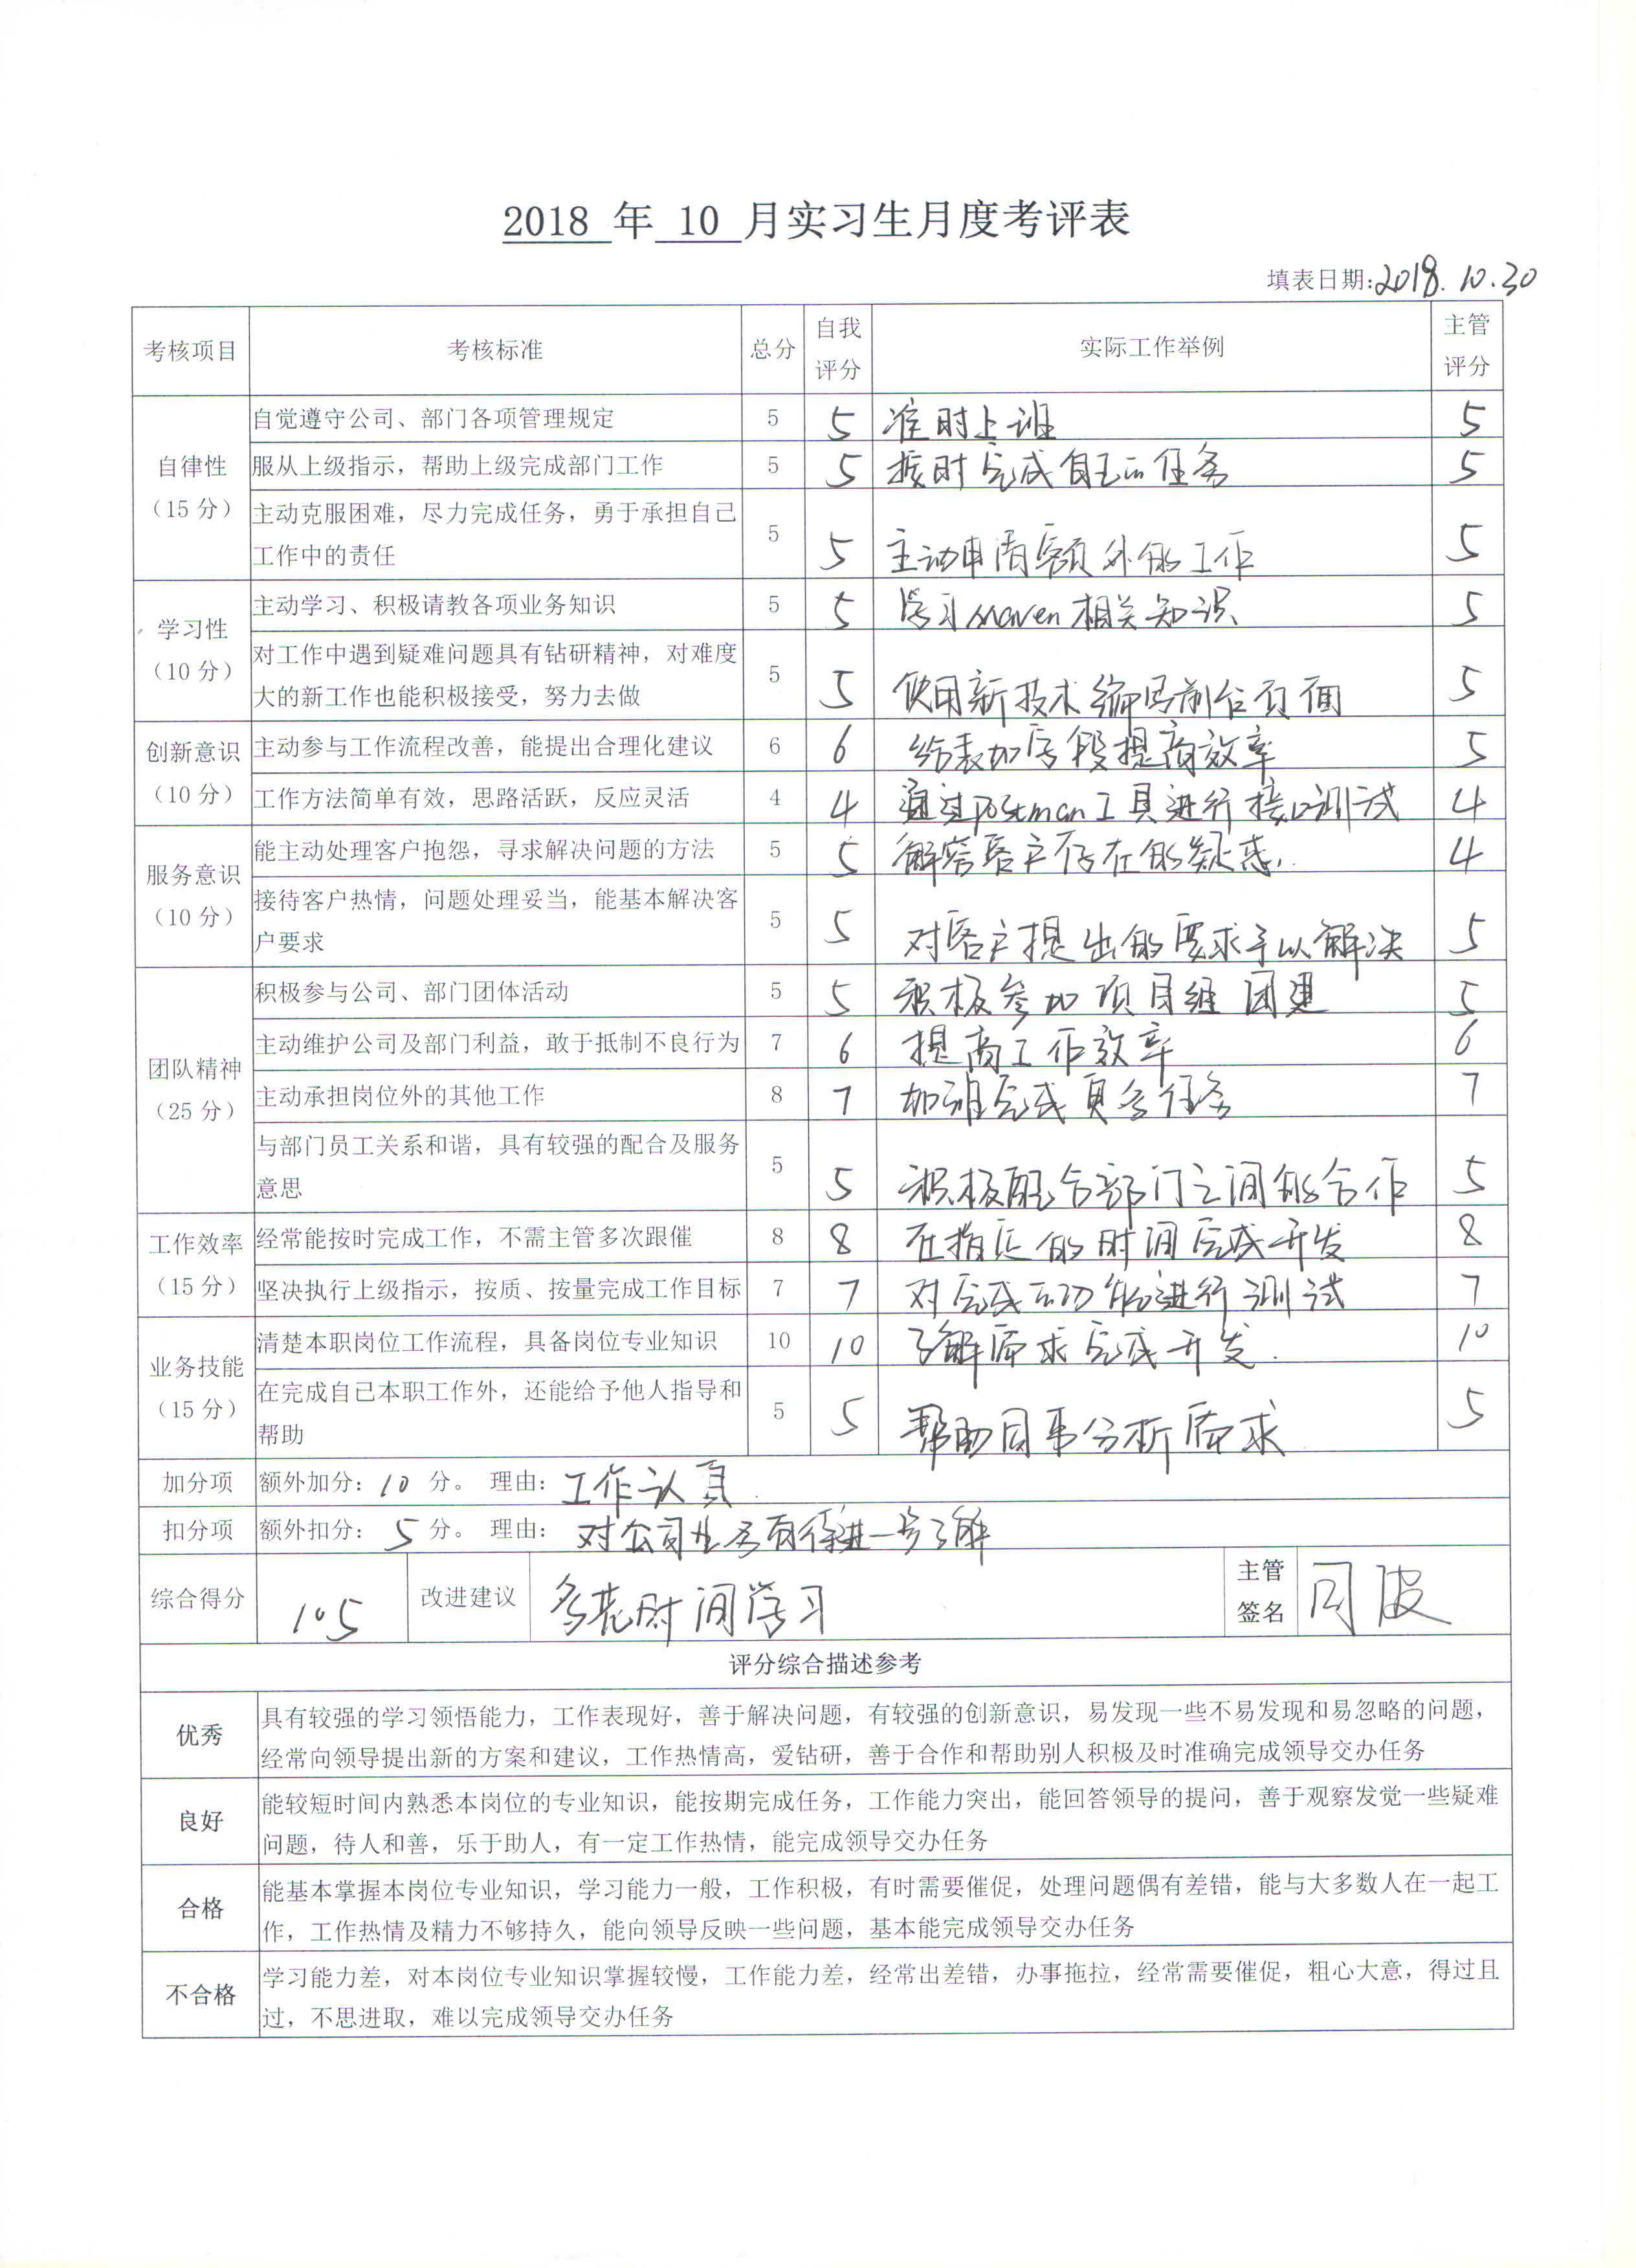 2018 年 10 月实习生月度考评表
填表日期:2018.10.30
考核项目 考核标准 总分 自我评分 实际工作举例 主管评分
自律性（15 分）
自觉遵守公司、部门各项管理规定 5 5 准时上班 5
服从上级指示，帮助上级完成部门工作 5 5 按时完成自己的任务 5
主动克服困难，尽力完成任务，勇于承担自己
工作中的责任 5 5 主动申请额外的工作 5
学习性（10 分）
主动学习、积极请教各项业务知识 5 5 学习maven相关知识 5
对工作中遇到疑难问题具有钻研精神，对难度
大的新工作也能积极接受，努力去做 5 5 使用新技术编写前台页面 5
创新意识（10 分）
主动参与工作流程改善，能提出合理化建议 6 6 给表加字段提高效率 5
工作方法简单有效，思路活跃，反应灵活 4 4 通过postman工具进行接口测试 4
服务意识（10 分）
能主动处理客户抱怨，寻求解决问题的方法 5 5 解答客户存在的疑惑. 4
接待客户热情，问题处理妥当，能基本解决客
户要求 5 5 对客户提出的要求予以解决 5
团队精神（25 分）
积极参与公司、部门团体活动 5 5 积极参加项目组团建 5
主动维护公司及部门利益，敢于抵制不良行为 7 6 提高工作效率 6
主动承担岗位外的其他工作 8 7 加班完成 任务 7
与部门员工关系和谐，具有较强的配合及服务
意思 5 5 积极配合部门之间的合作 5
工作效率（15 分）
经常能按时完成工作，不需主管多次跟催 8 8 在指定的时间完成开发 8
坚决执行上级指示，按质、按量完成工作目标 7 7 对完成的功能进行测试 7
业务技能（15 分）
清楚本职岗位工作流程，具备岗位专业知识 10 10 了解需求完成开发. 10
在完成自己本职工作外，还能给予他人指导和
帮助 5 5 帮助同事分析需求 5
加分项 额外加分：10 分。 理由：工作认真
扣分项 额外扣分：5 分。 理由：对公司业务有待进一步了解
综合得分 105 改进建议 多花时间学习 主管签名 闫波
评分综合描述参考
优秀
具有较强的学习领悟能力，工作表现好，善于解决问题，有较强的创新意识，易发现一些不易发现和易忽略的问题，
经常向领导提出新的方案和建议，工作热情高，爱钻研，善于合作和帮助别人积极及时准确完成领导交办任务
良好
能较短时间内熟悉本岗位的专业知识，能按期完成任务，工作能力突出，能回答领导的提问，善于观察发觉一些疑难
问题，待人和善，乐于助人，有一定工作热情，能完成领导交办任务
合格
能基本掌握本岗位专业知识，学习能力一般，工作积极，有时需要催促，处理问题偶有差错，能与大多数人在一起工
作，工作热情及精力不够持久，能向领导反映一些问题，基本能完成领导交办任务
不合格
学习能力差，对本岗位专业知识掌握较慢，工作能力差，经常出差错，办事拖拉，经常需要催促，粗心大意，得过且
过，不思进取，难以完成领导交办任务